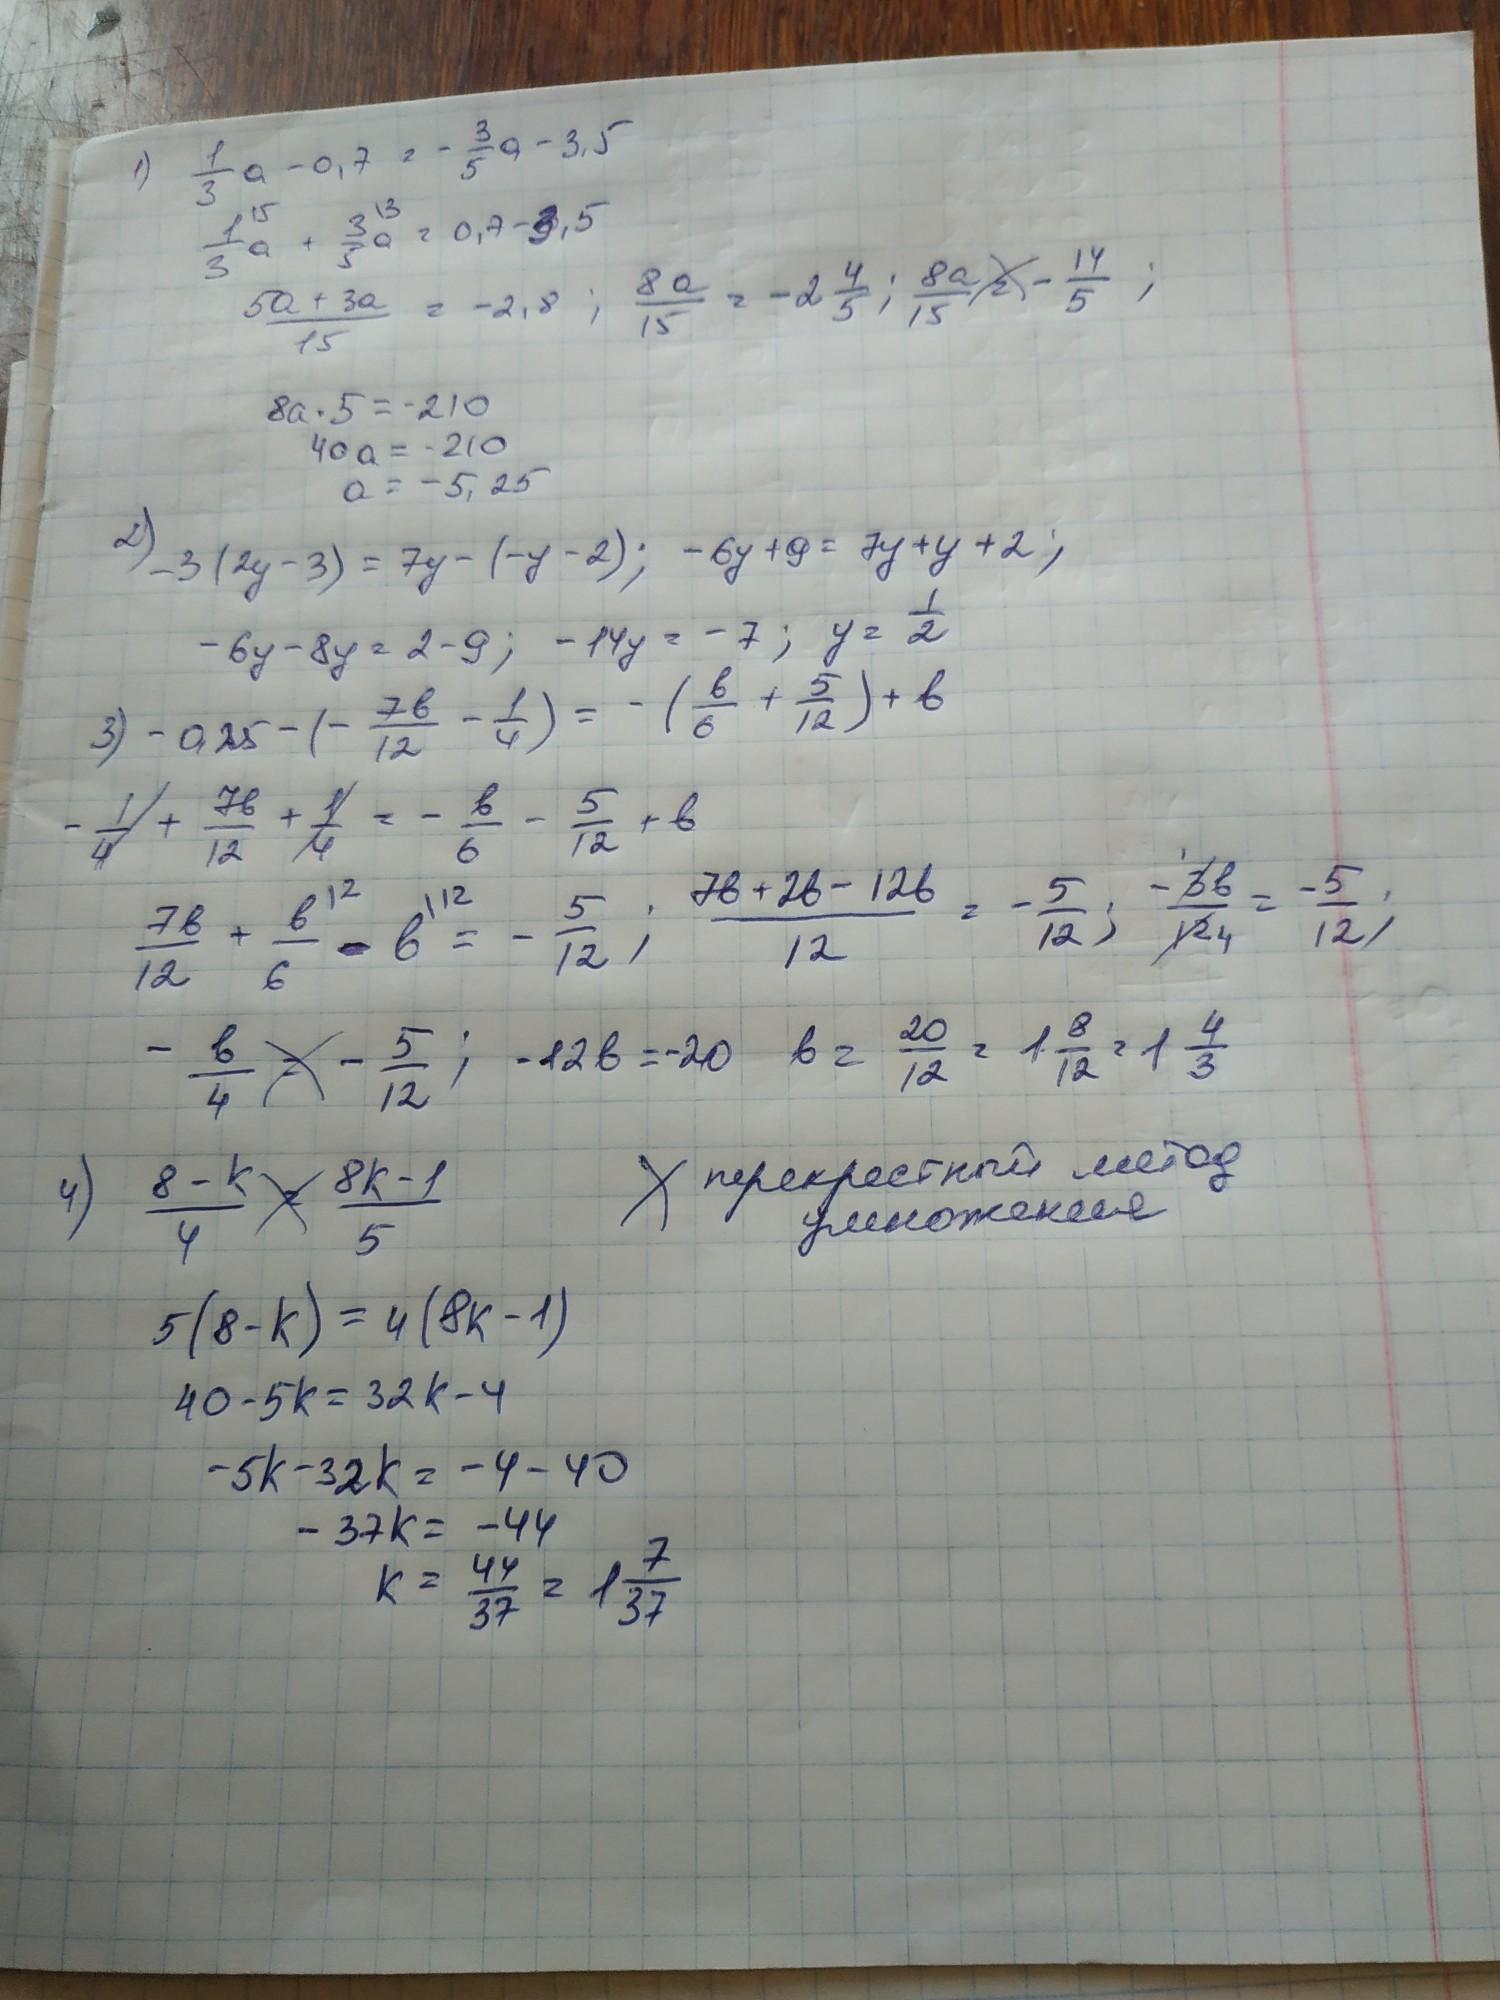 1) 1/3 a - 0,7 = - 3/5 a - 3,5
1/3 a |5 + 3/5 a |3 = 0,7 - 3,5
(5a + 3a)/15 = -2,8 ; 8a/15 = -2 4/5 ; 8a/15 = - 14/5 ;
8a · 5 = -210
40a = -210
a = -5,25
2) -3(2y - 3) = 7y - (-y - 2); -6y + 9 = 7y + y + 2;
-6y - 8y = 2 - 9; -14y = -7; y = 1/2
3) - 0,25 - (- 7b/12 - 1/4) = - (b/6 + 5/12) + b
- 1/4 + 7b/12 + 1/4 = - b/6 - 5/12 + b
7b/12 + b/6 |2 - b |12 = - 5/12 ; (7b + 2b - 12b)/12 = - 5/12 ; - 3b/12 4 = -5/12 ;
- b/4 = - 5/12 ; -12b = -20 b = 20/12 = 1 8/12 = 1 4/3
4) (8 - k)/4 = (8k - 1)/5 X перекрестный метод
умножение
5(8 - k) = 4(8k - 1)
40 - 5k = 32k - 4
-5k - 32k = -4 - 40
- 37k = -44
k = 44/37 = 1 7/37